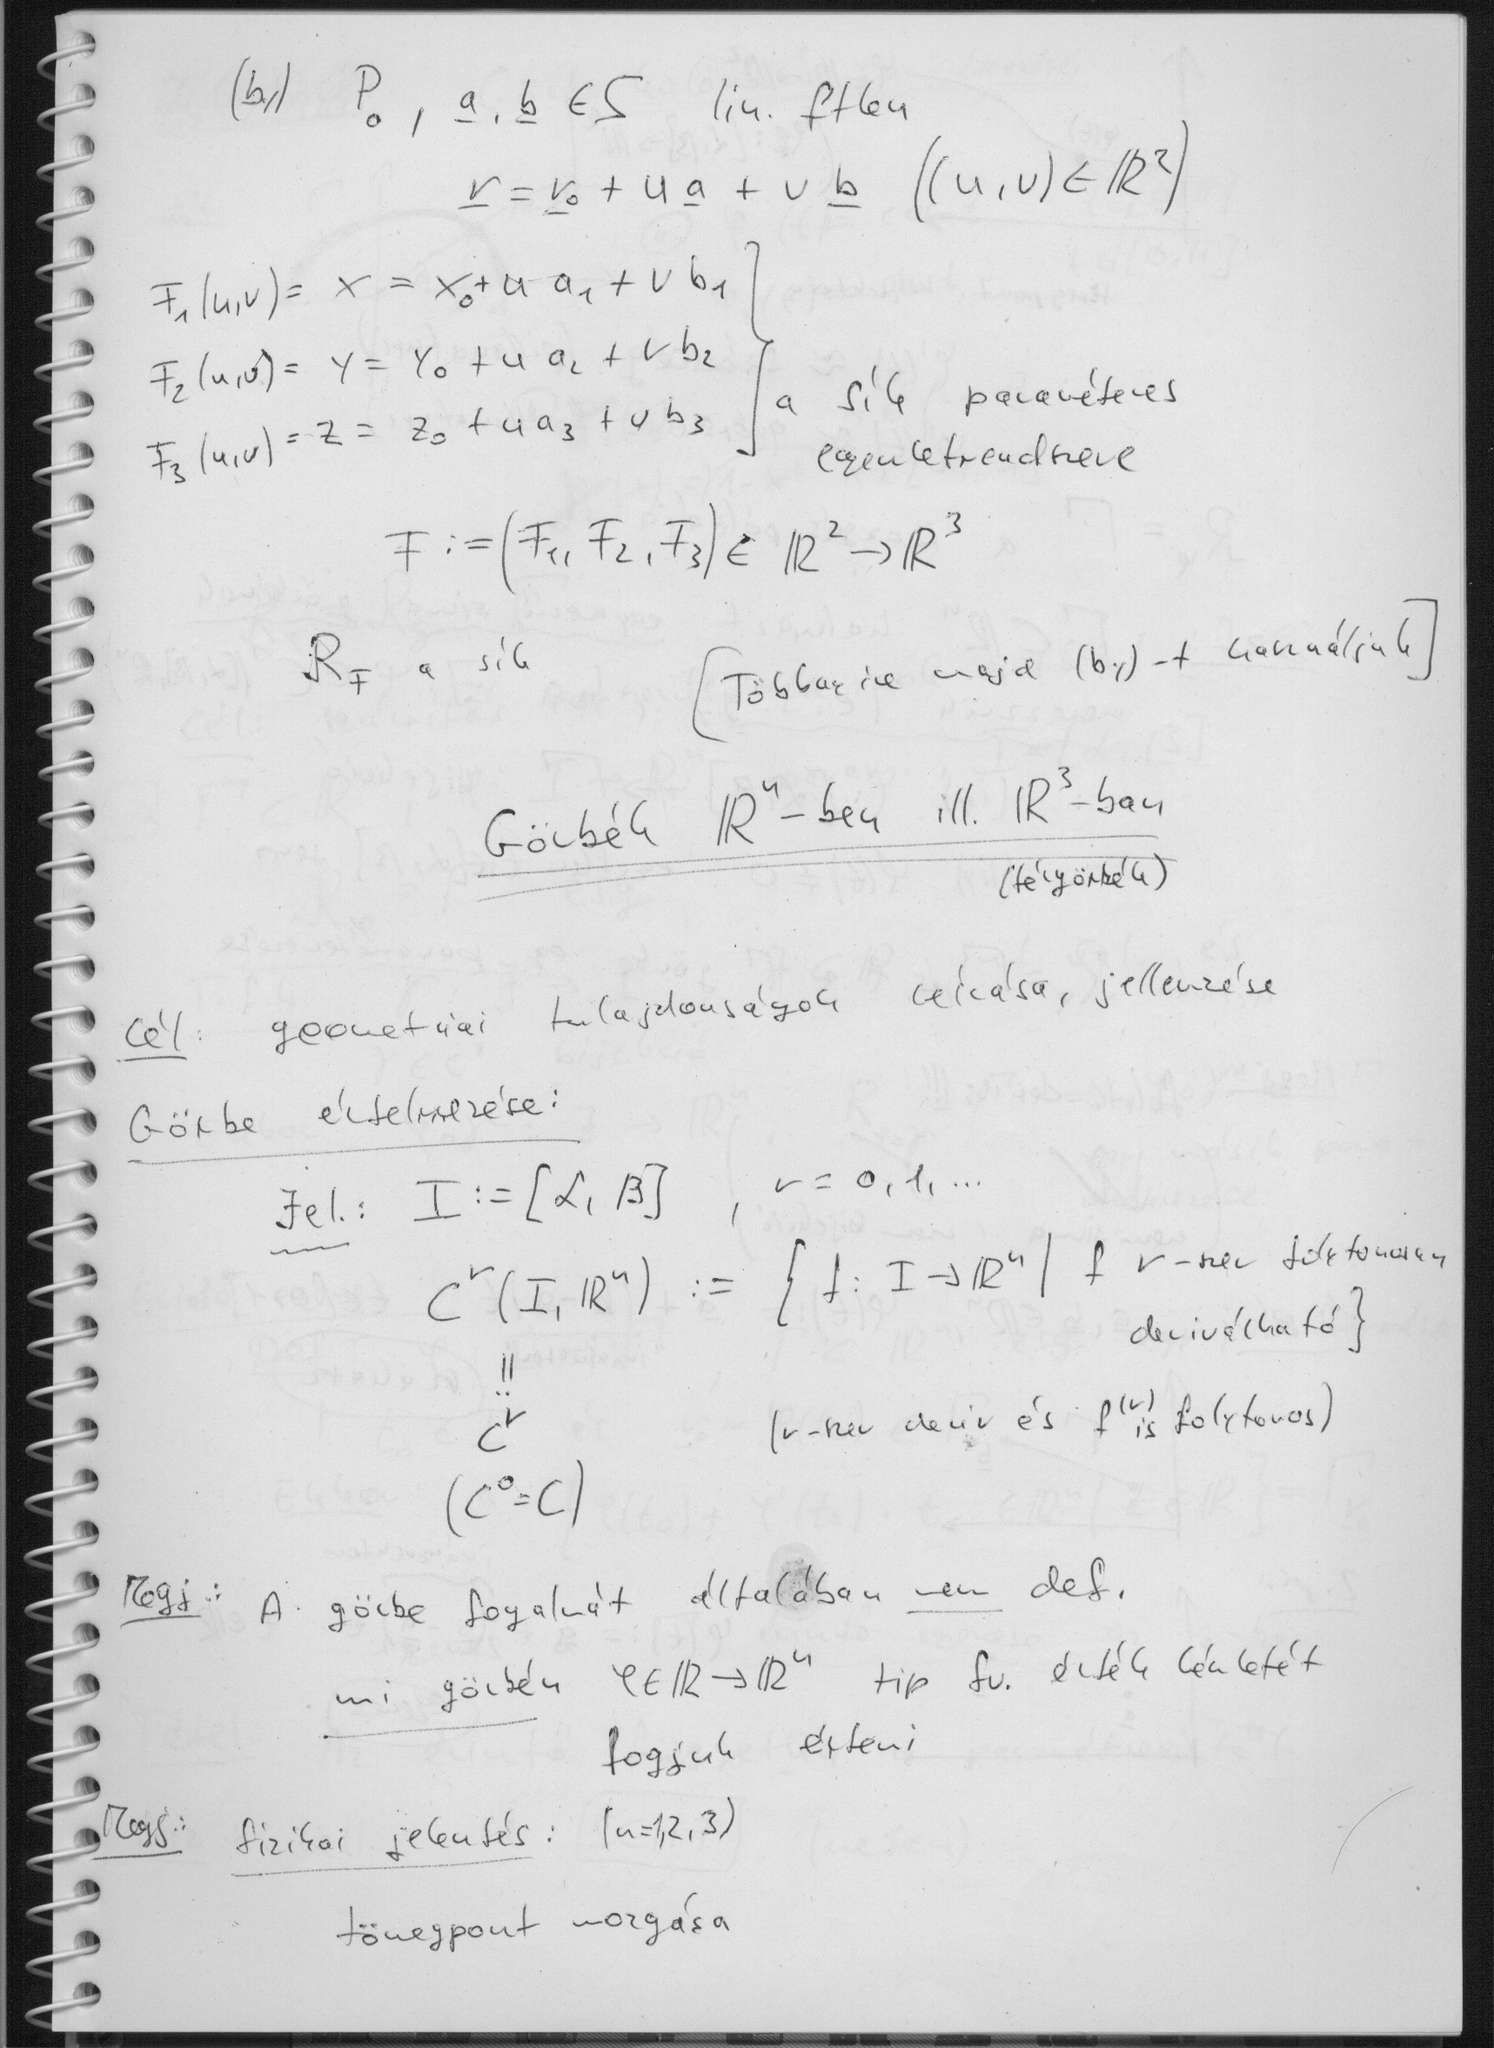 (b,) P₀, a, b ∈ S lin. ftlen
r = r₀ + u a + v b ((u,v) ∈ ℝ²)
F₁(u,v) = x = x₀ + u a₁ + v b₁
F₂(u,v) = y = y₀ + u a₂ + v b₂
F₃(u,v) = z = z₀ + u a₃ + v b₃
a sík paraméteres
egyenletrendszere
F := (F₁, F₂, F₃) ∈ ℝ² → ℝ³
R_F a sík [Többnyire majd (b,)-t használjuk]
Görbék ℝⁿ-ben ill. ℝ³-ban
(térgörbék)
Cél: geometriai tulajdonságok leírása, jellemzése
Görbe értelmezése:
Jel.: I := [α, β] , r = 0, 1, ...
Cʳ(I, ℝⁿ) := {f: I → ℝⁿ | f r-szer folytonosan
deriválható}
=:
Cʳ (r-szer deriv és f⁽ʳ⁾ is folytonos)
(C⁰ = C)
Megj.: A görbe fogalmát általában nem def.
mi görbén φ ∈ ℝ → ℝⁿ tip fv. értékkészletét
fogjuk érteni
Megj.: fizikai jelentés: (n=1,2,3)
tömegpont mozgása